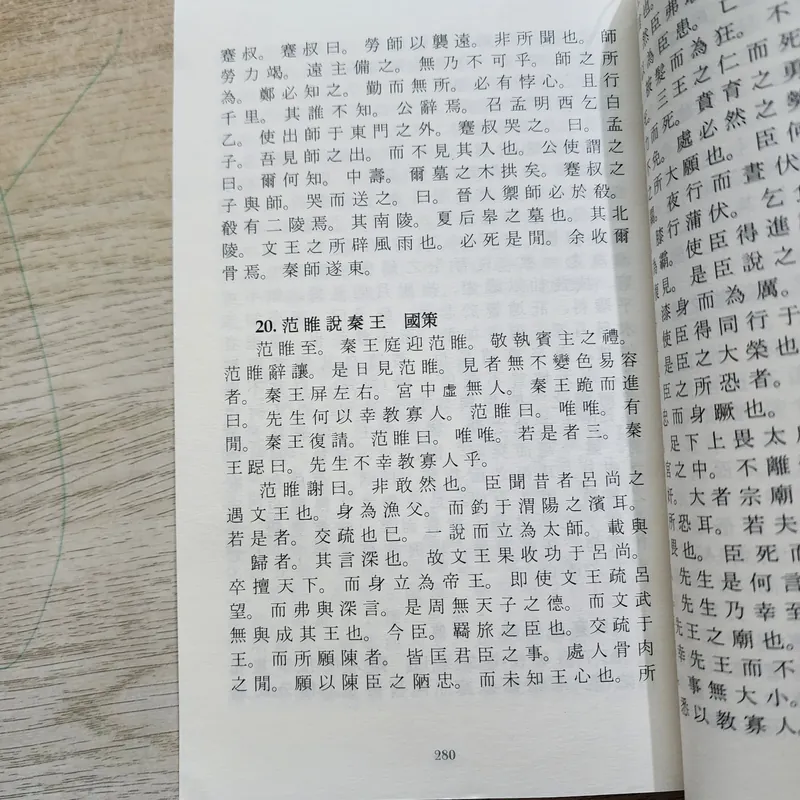 蹇叔。蹇叔曰。勞師以襲遠。非所聞也。師
勞力竭。遠主備之。無乃不可乎。師之所
為。鄭必知之。勤而無所。必有悖心。且行
千里。其誰不知。公辭焉。召孟明西乞白
乙。使出師于東門之外。蹇叔哭之。曰。孟
子。吾見師之出。而不見其入也。公使謂之
曰。爾何知。中壽。爾墓之木拱矣。蹇叔之
子與師。哭而送之。曰。晉人禦師必於殽。
殽有二陵焉。其南陵。夏后皋之墓也。其北
陵。文王之所辟風雨也。必死是閒。余收爾
骨焉。秦師遂東。
20. 范雎說秦王 國策
范雎至。秦王庭迎范雎。敬執賓主之禮。
范雎辭讓。是日見范雎。見者無不變色易容
者。秦王屏左右。宮中虛無人。秦王跪而進
曰。先生何以幸教寡人。范雎曰。唯唯。有
閒。秦王復請。范雎曰。唯唯。若是者三。秦
王跽曰。先生不幸教寡人乎。
范雎謝曰。非敢然也。臣聞昔者呂尚之
遇文王也。身為漁父。而釣于渭陽之濱耳。
若是者。交疏也已。一說而立為太師。載與
歸者。其言深也。故文王果收功于呂尚。
卒擅天下。而身立為帝王。即使文王疏呂
望。而弗與深言。是周無天子之德。而文武
無與成其王也。今臣。羇旅之臣也。交疏于
王。而所願陳者。皆匡君臣之事。處人骨肉
之閒。願以陳臣之陋忠。而未知王心也。所
280
也。
然臣弗
為臣患。亡
被髮而為狂。不
三王之仁而死
力而死。賁育之勇
不免。處必然之勢
之所大願也。臣何
夜行而晝伏
膝行蒲伏。乞食
為霸。使臣得進
復見。是臣說之
漆身而為厲。
使臣得同行于
臣之大榮也
臣之所恐者。
忠而身蹶也。
足下上畏太后
宮之中。不離
奸。大者宗廟
所恐耳。若夫
畏也。臣死而
先生是何言
先生乃幸至
先王之廟也。
幸先王而不
事無大小。
悉以教寡人